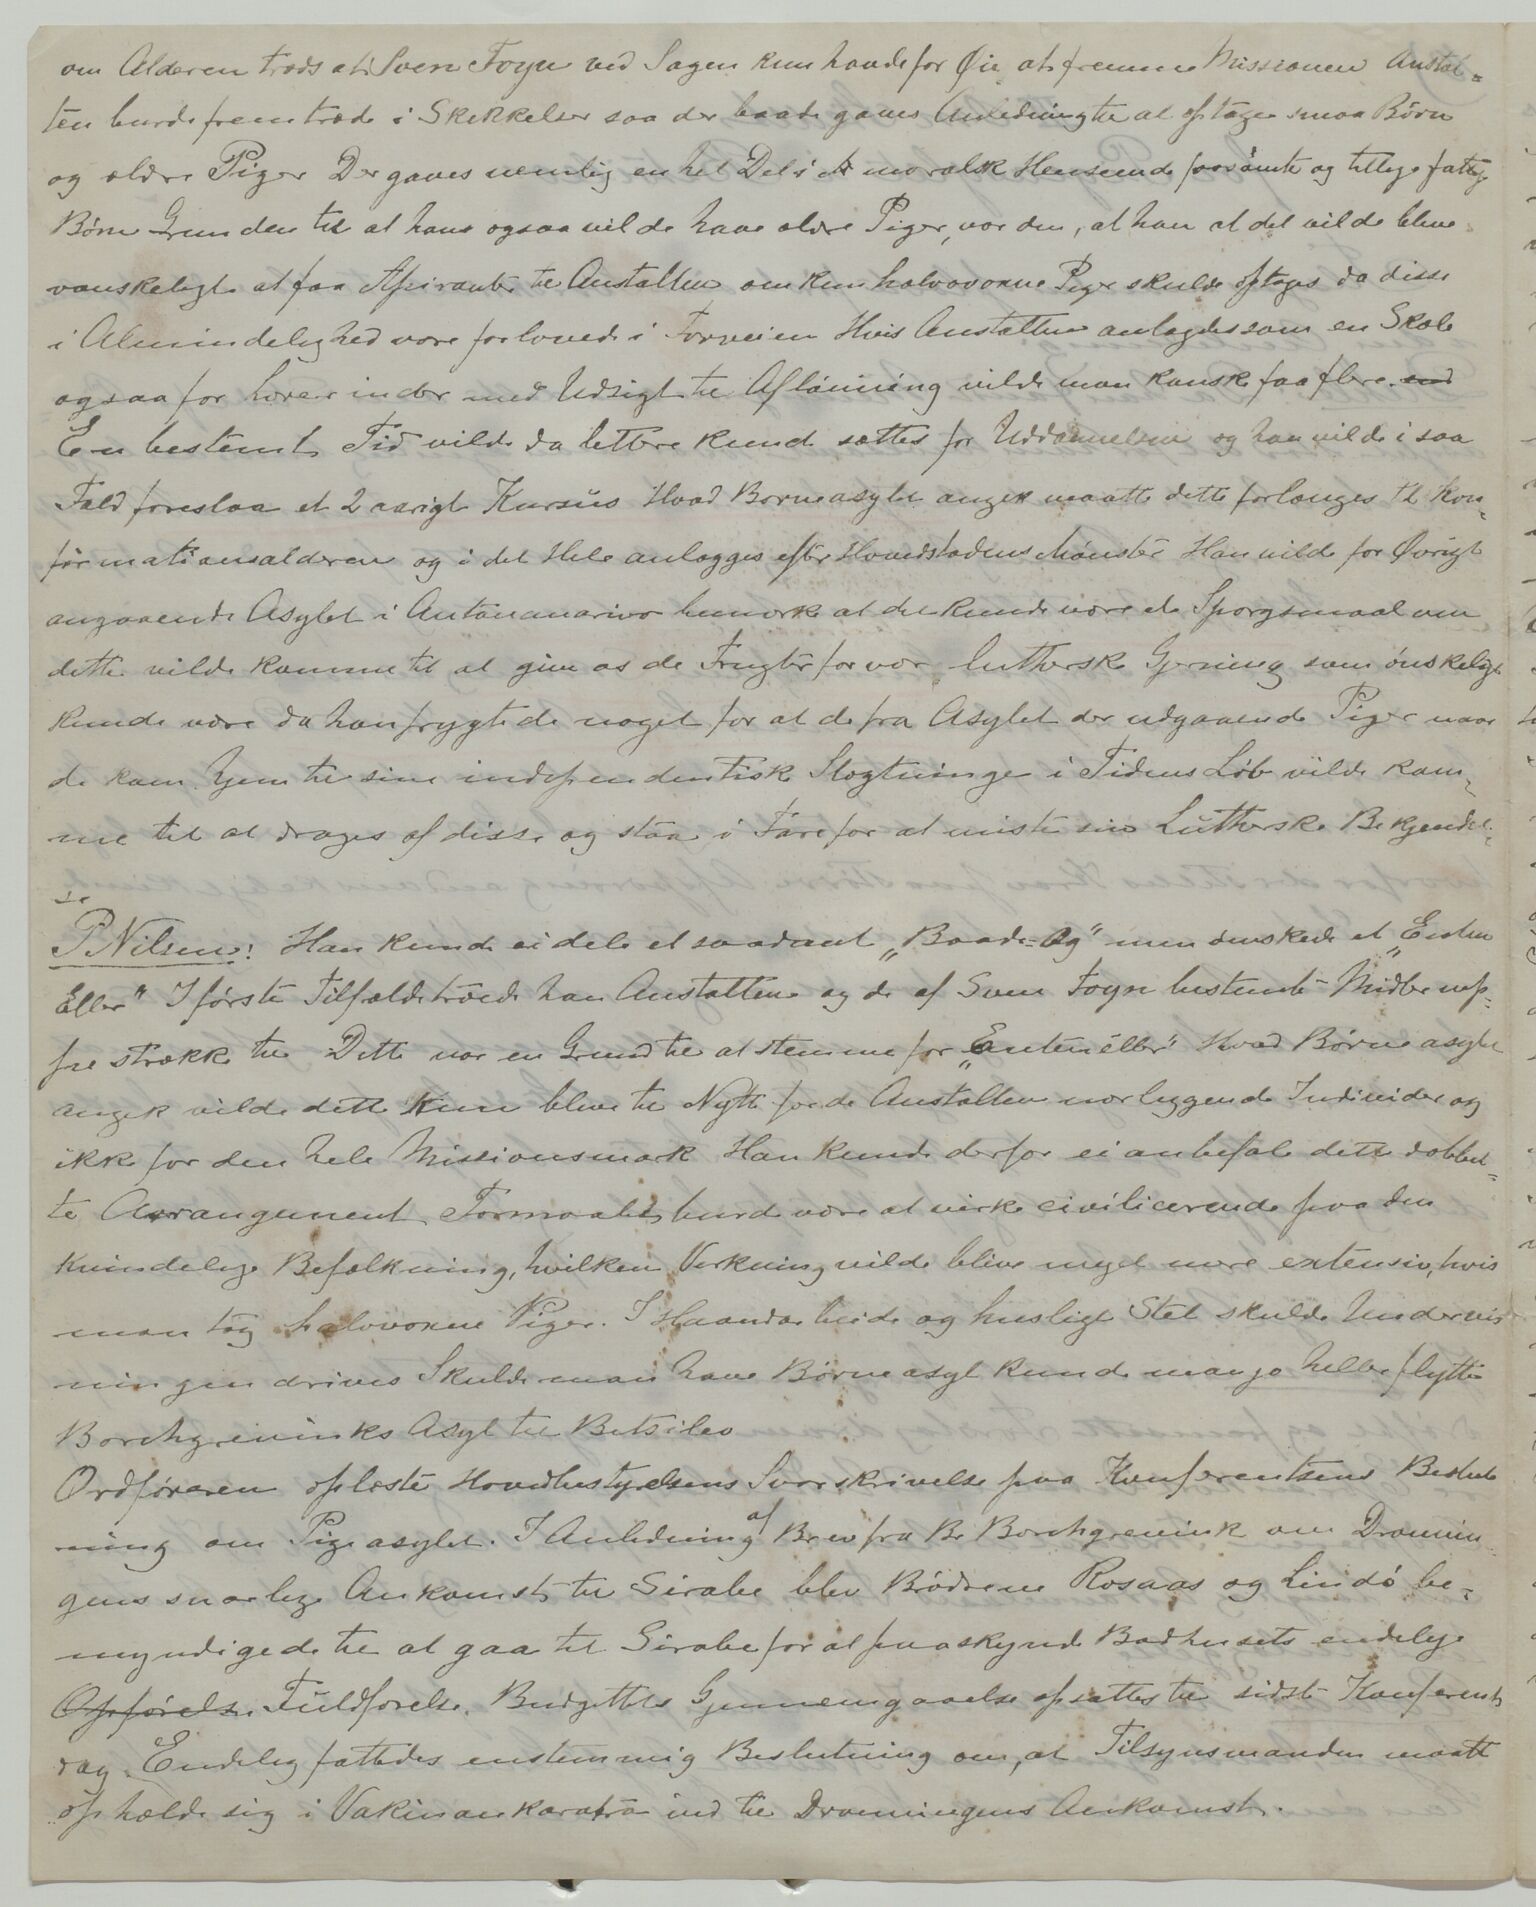 om Alderen trods at Sven Foyn ved Sagen kun havde for Øie at fremme Missionen Anstal-
ten burde fremtræde i Skikkelse saa der baade gaves Anledning til at optage smaa Børn
og ældre Piger Der gaves nemlig en hel Del i moralsk Henseende forsømte og tillige fattige
Børn Grunden til at han ogsaa vilde have ældre Piger, var den, at han at det vilde blive
vanskeligt at faa Aspiranter til Anstalten om kun halvvoxne Piger skulde optages da disse
i Almindelighed vare forlovede i Forveien Hvis Anstalten anlagdes som en Skole
ogsaa for Lærerinder med Udsigt til Aflønning vilde man kanske faa flere end
En bestemt Tid vilde da lettere kunde sættes for Uddannelsen og han vilde i saa
Fald foreslaa et 2 aarigt Kursus Hvad Børneasylet angik maatte dette forlænges til Kon-
firmationsalderen og i det Hele anlægges efter Hovedstadens Mønster Han vilde for Øvrigt
angaaende Asylet i Antananarivo bemærke at det kunde være et Spørgsmaal om
dette vilde komme til at give os de Frugter for vor luthersk Gjerning som ønskeligt
kunde være da han frygtede noget for at de fra Asylet der udgaaende Piger naar
de kom hjem til sine independentisk Slægtninge i Tidens Løb vilde kom-
me til at drages af disse og staa i Fare for at miste sin Lutherske Bekjendel-
se
P. Nilsen: Han kunde ei dele et saadant "Baade-Og" men ønskede et "Enten
Eller" I første Tilfælde troede han Anstalten og de af Sven Foyn bestemte Midler
strække til Dette var en Grund til at stemme for "Enten eller" Hvad Børneasylet
angik vilde dette kun blive til Nytte for de Anstalten nærliggende Individer og
ikke for den hele Missionsmark Han kunde derfor ei anbefale dette dobbel-
te Arrangement Formaalet burde være at virke civilicerende paa den
kvindelige Befolkning, hvilken Virkning vilde blive meget mere extensiv, hvis
man tog halvvoxne Piger. I Haandarbeide og husligt Stel skulde Undervis
ningen drives Skulde man have Børneasyl kunde man jo heller flytte
Borchgrevinks Asyl til Betsileo
Ordføreren oplæste Hovedbestyrelsens Svarskrivelse paa Konferentsens Beslut
ning om Pigeasylet. I Anledning af Brev fra Br Borchgrevink om Dronnin-
gens snarlige Ankomst til Sirabe blev Brødrene Rosaas og Lindø be-
myndigede til at gaa til Sirabe for at paaskynde Badhusets endelige
Opførelse Fuldførelse. Budgettets Gjennemgaaelse opsattes til sidste Konferents
dag. Endelig fattedes enstemmig Beslutning om, at Tilsynsmanden maatte
opholde sig i Vakinankaratra ind til Dronningens Ankomst.